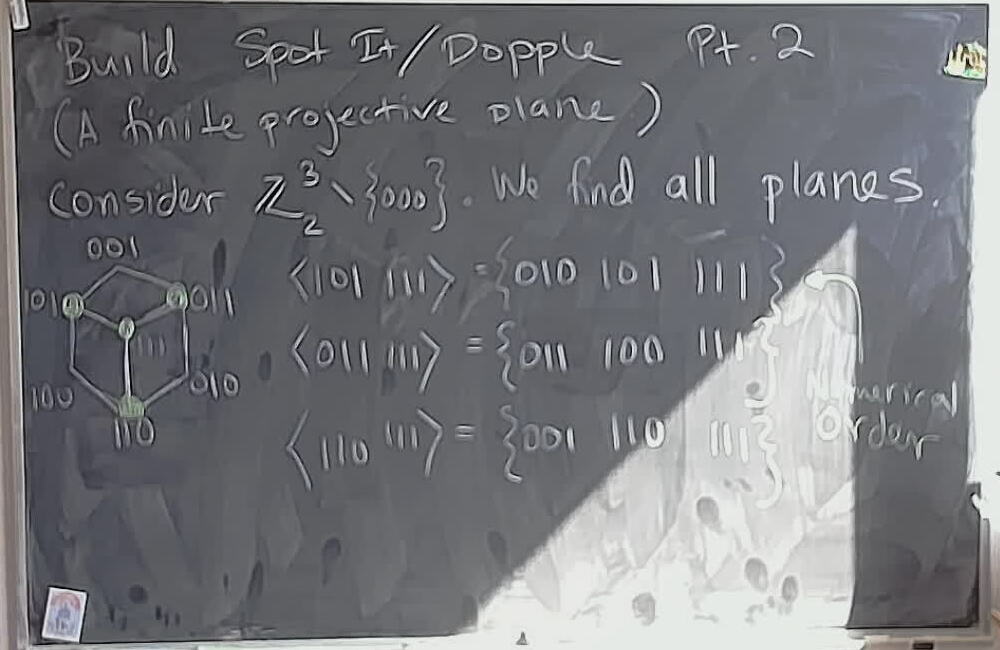 Build Spot It/Dopple Pt. 2
(A finite projective plane)
Consider ℤ₂³ \ {000}. We find all planes.
001
101
011
111
100
010
110
⟨101 111⟩ = {010 101 111}
⟨011 111⟩ = {011 100 111}
⟨110 111⟩ = {001 110 111}
Numerical
Order